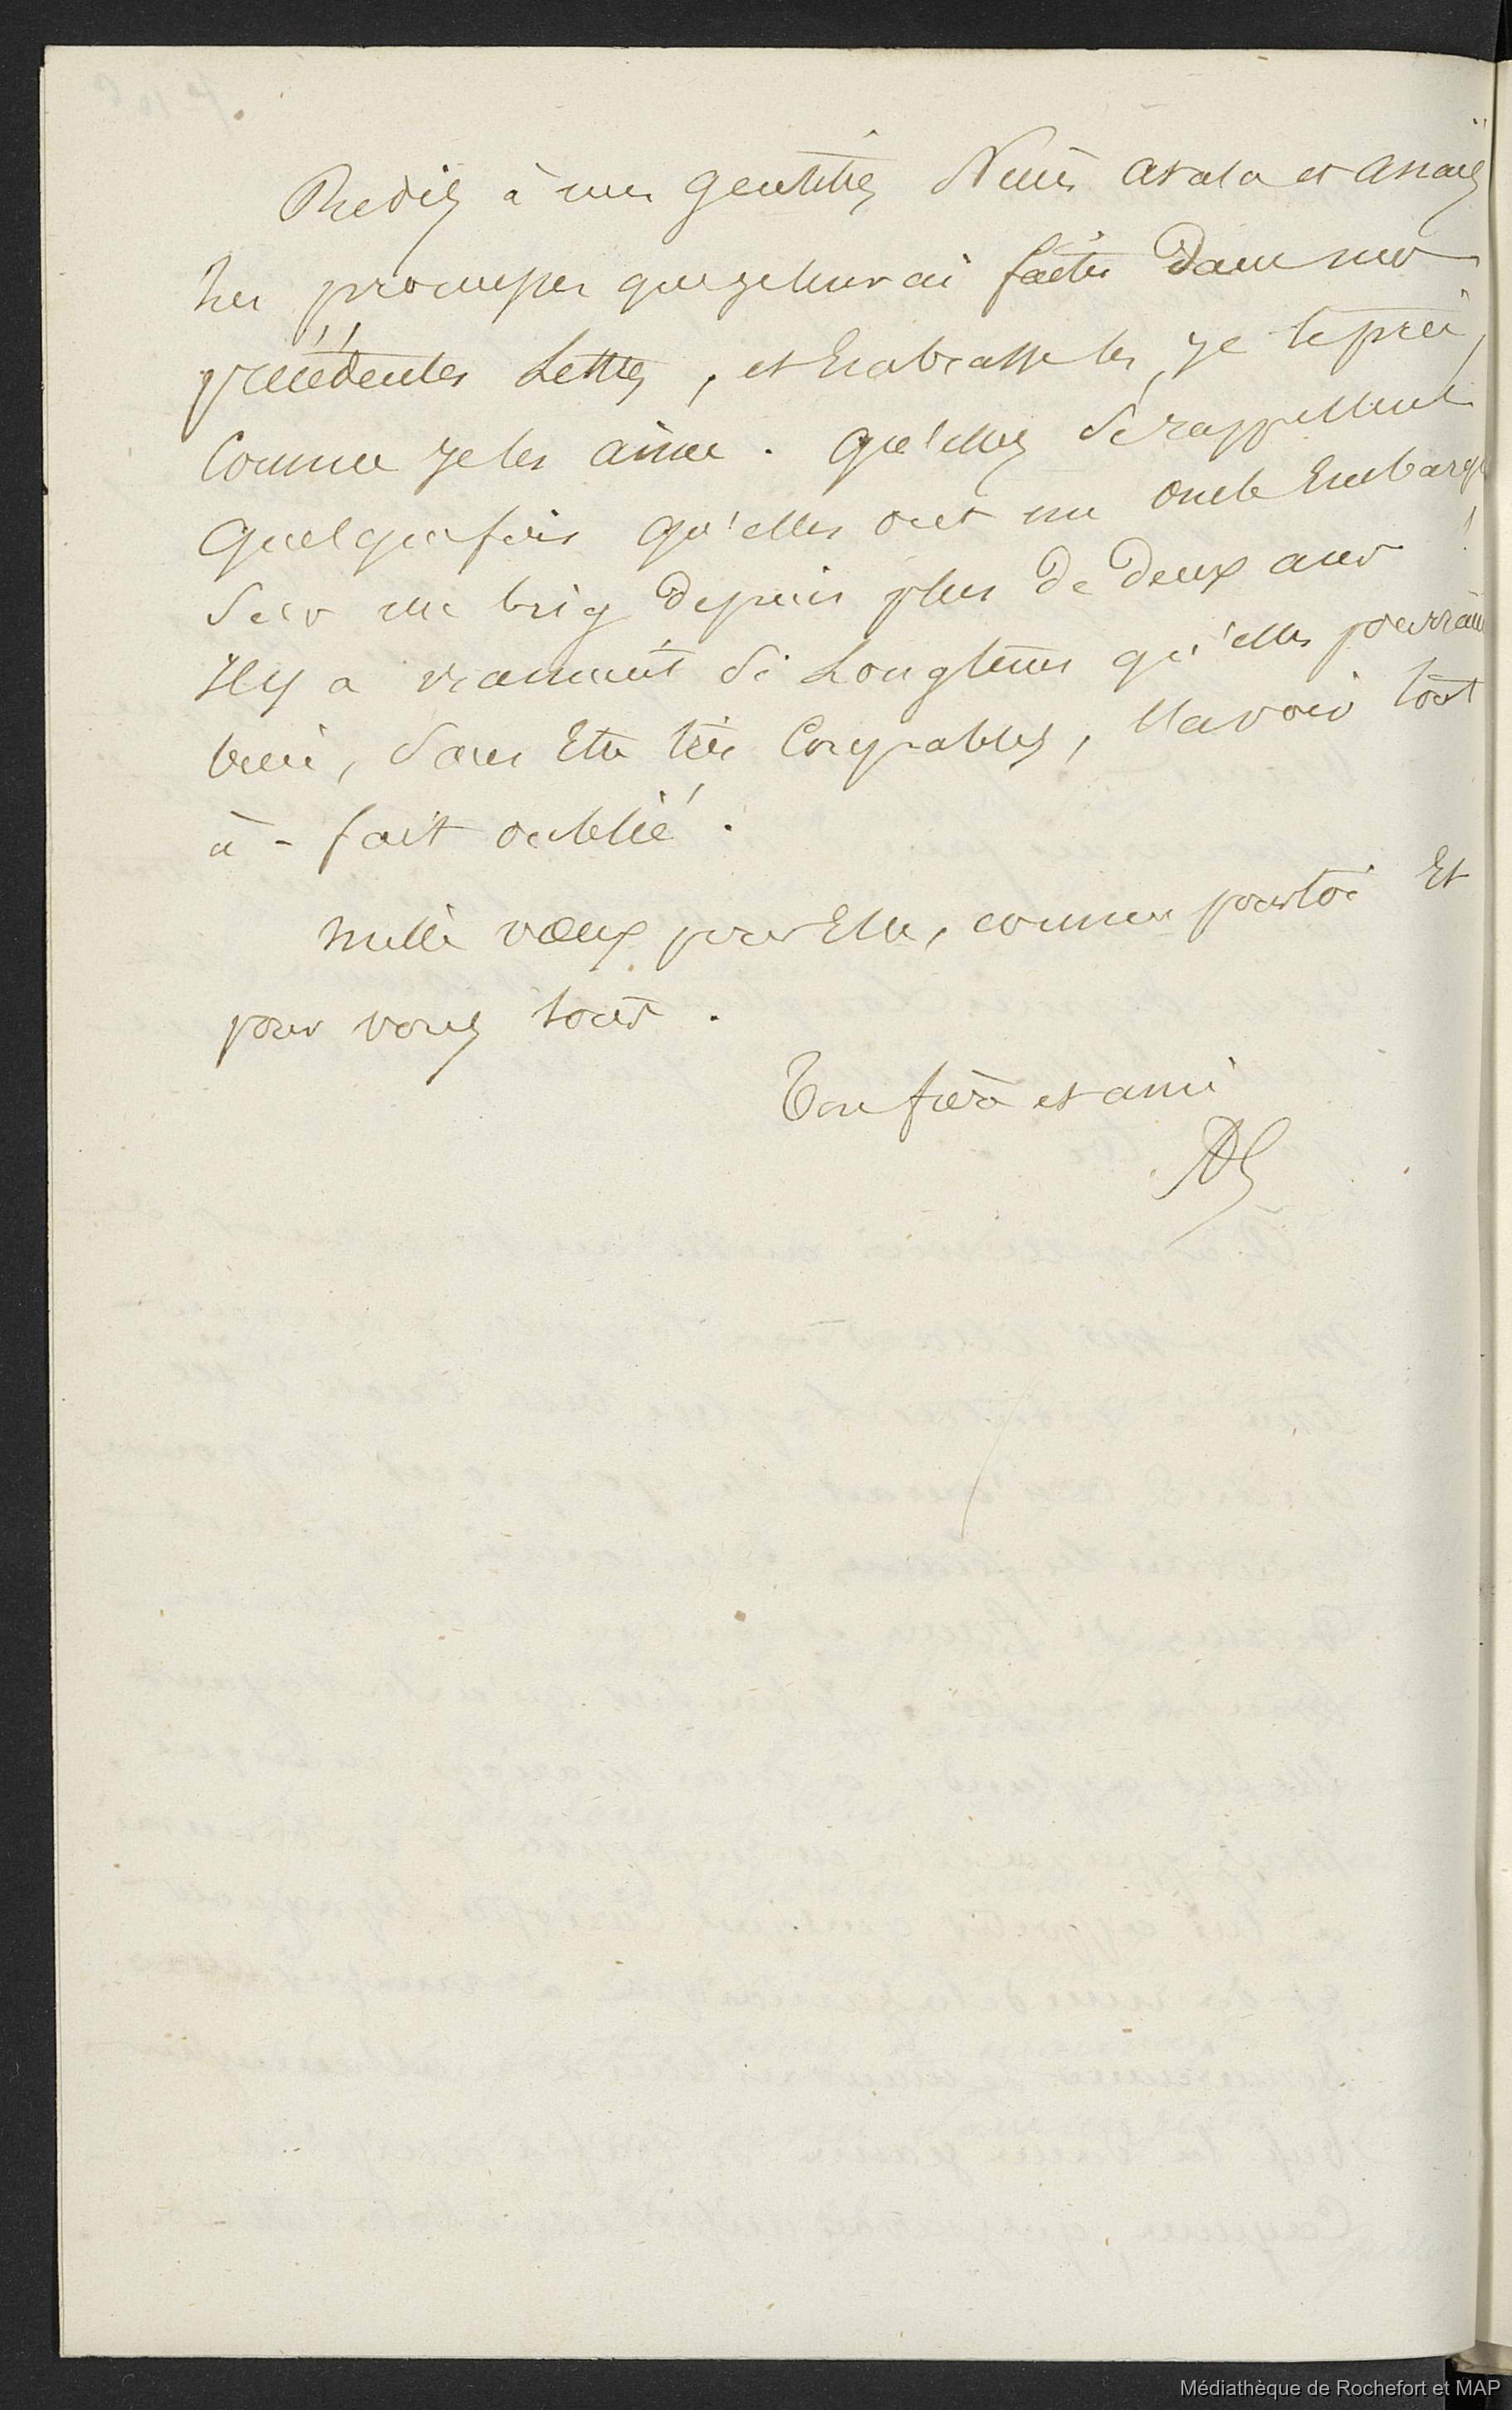 Redis à mes gentilles Nièces Atala et Anaïs
les promesses que je leur ai faites dans mes
précédentes Lettres, et Embrasse les, je te prie,
Comme je les aime. Qu'elles se rappellent
Quelquefois qu'elles ont un oncle Embarqué
sur un brig depuis plus de deux ans !
Il y a vraiment si Longtems qu'elles pourraient
bien, sans Etre très Coupables, l'avoir tout
à-fait oublié.
Mille vœux pour Elle, comme pour toi Et
pour vous tous.
Ton frère et ami
Médiathèque de Rochefort et MAP